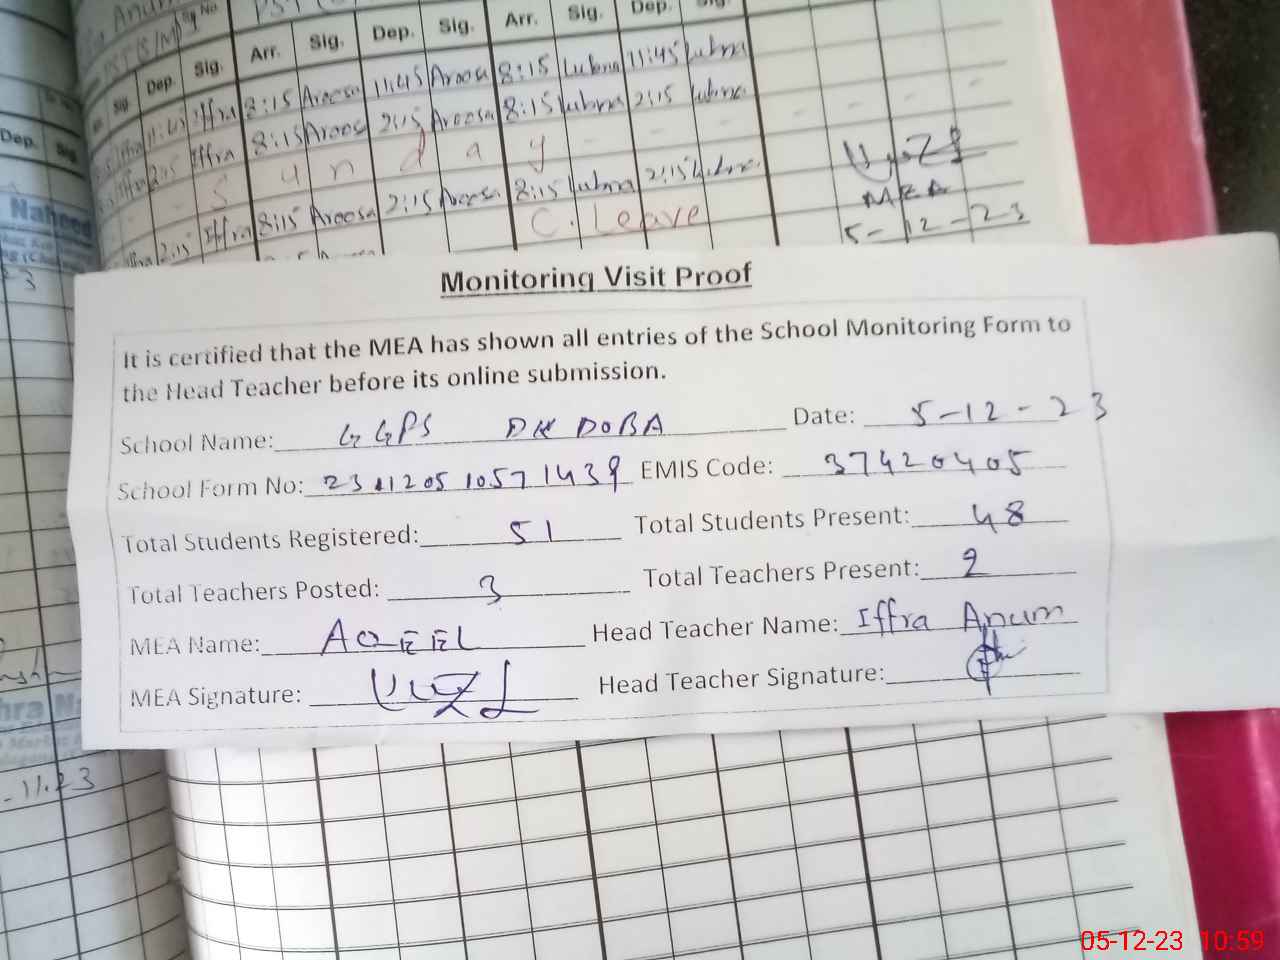 Arr. Sig. Dep. Sig. Arr. Sig. Dep. Sig.
Dep. Sig. 8:15 Aroosa 11:45 Aroosa 8:15 Lubna 11:45 Lubna
Iffra 8:15 Aroosa 2:15 Aroosa 8:15 Lubna 2:15 Lubna
S u n d a y
2:15 Iffra 8:15 Aroosa 2:15 Aroosa 8:15 Lubna 2:15 Lubna
C. Leave
MEA
5-12-23
Monitoring Visit Proof
It is certified that the MEA has shown all entries of the School Monitoring Form to
the Head Teacher before its online submission.
School Name: GGPS DK DOBA Date: 5-12-23
School Form No: EMIS Code: 37420405
Total Students Registered: 51 Total Students Present: 48
Total Teachers Posted: 3 Total Teachers Present: 2
MEA Name: AQEEL Head Teacher Name: Iffra Anum
MEA Signature: Head Teacher Signature:
Dep. Sig.
Naheed
.11.23
05-12-23 10:59